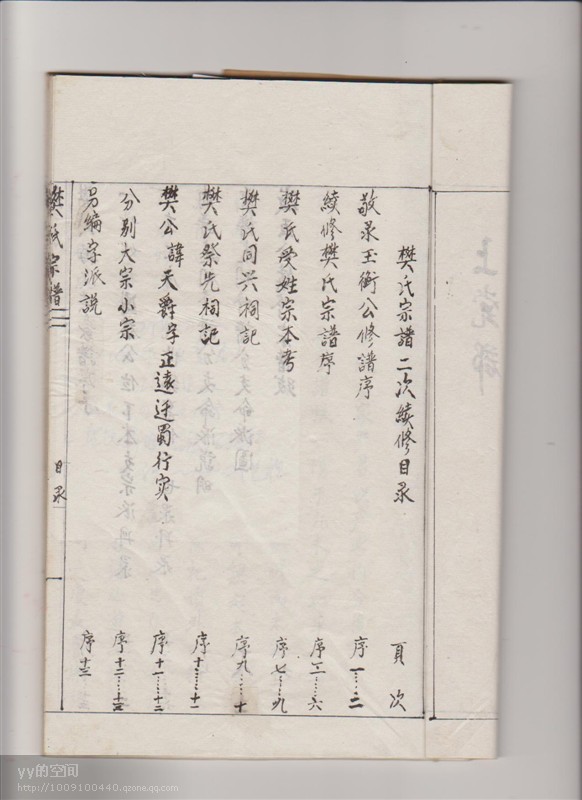 樊氏宗譜二次續修目录 頁次
敬录玉衡公修譜序 序一……二
續修樊氏宗譜序 序二……六
樊氏受姓宗本考 序七……九
樊氏同兴祠記 序九……十
樊氏祭先祠記 序十……十一
樊公諱天爵字正遠迁蜀行实 序十一……十二
分别大宗小宗 序十二……十三
另編字派説 序十三
樊氏宗譜 目录
yy的空间
http://1009100440.qzone.qq.com